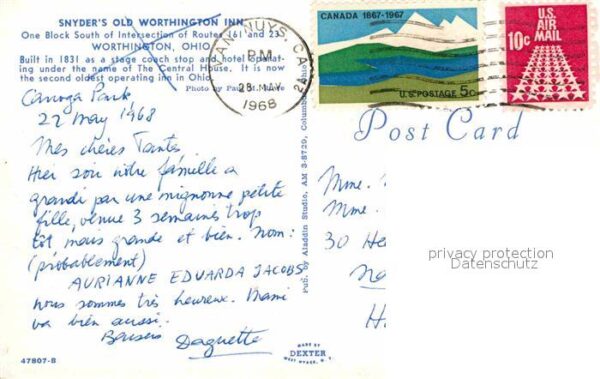 SNYDER'S OLD WORTHINGTON INN
One Block South of Intersection of Routes 161 and 23
WORTHINGTON, OHIO
Built in 1831 as a stage coach stop and hotel operating under the name of The Central House. It is now
the second oldest operating inn in Ohio.
Photo by Paul
Canoga Park
22 May 1968
Mes chères Tantes
Hier soir notre famille a
grandi par une mignonne petite
fille, venue 3 semaines trop
tôt mais grande et bien. Nom:
(probablement)
AURIANNE EDUARDA JACOBS
nous sommes très heureux. Mami
va bien aussi.
Baisers Daguette
47807-B
Pub. by Aladdin Studio, AM 3-8729, Columbus
MADE BY
DEXTER
WEST NYACK, N.Y.
VAN NUYS, CA
PM
28 MAY
1968
CANADA 1867-1967
U.S. POSTAGE 5c
U.S.
AIR
MAIL
10c
Post Card
Mme.
Mme.
30 He
privacy protection
Datenschutz